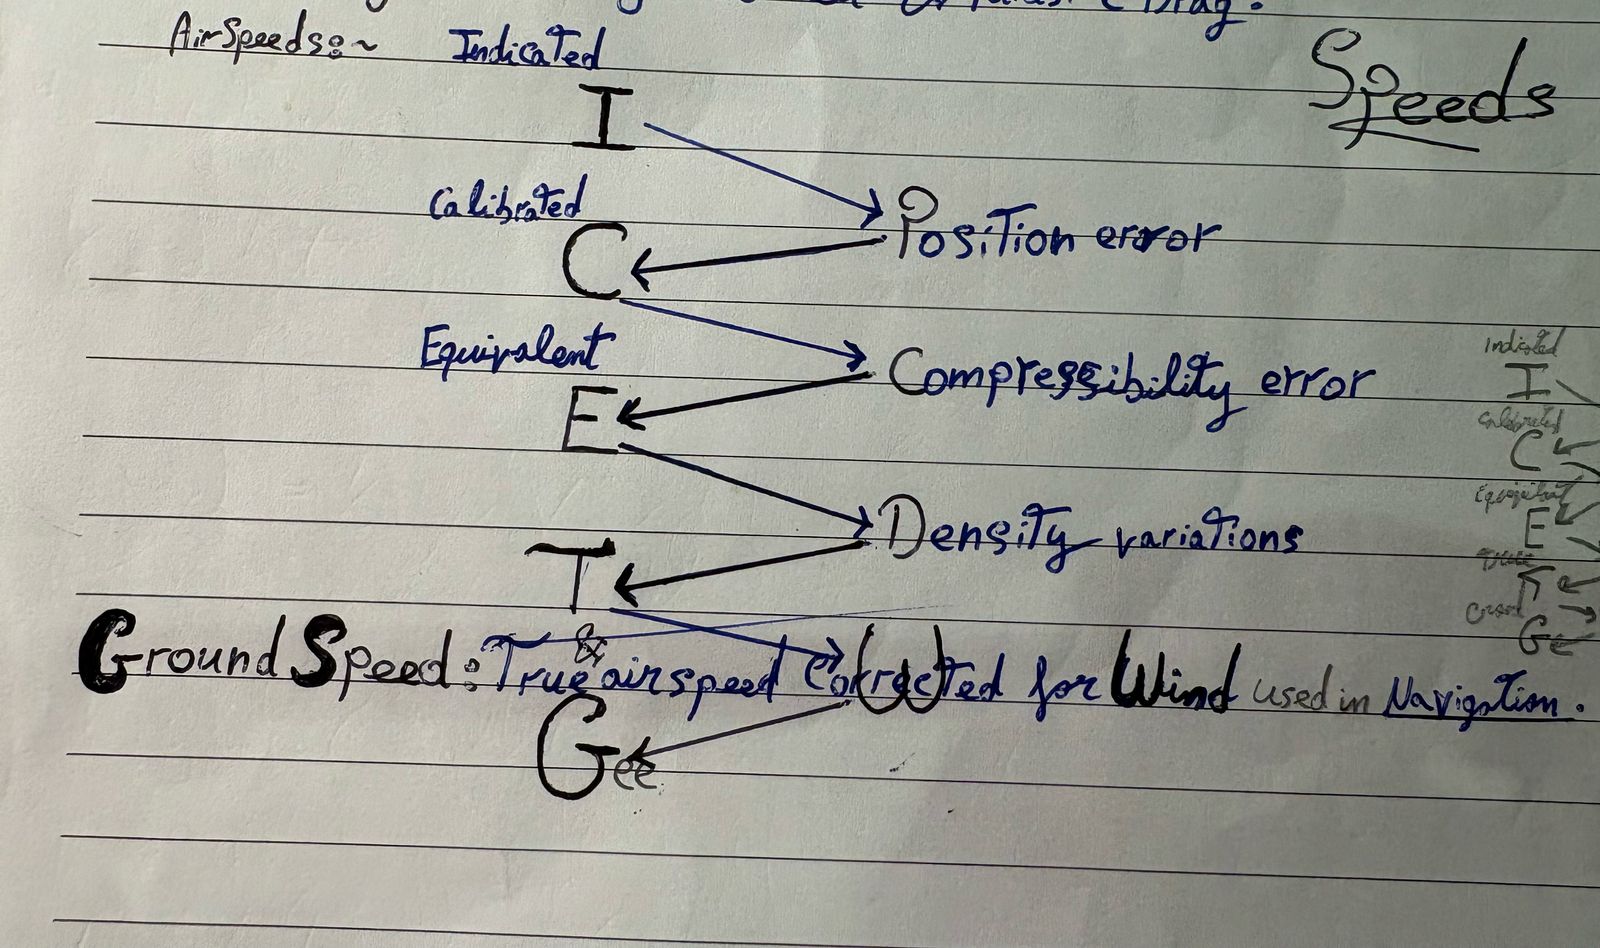 Drag.
AirSpeeds:~ Indicated
Speeds
I
Calibrated
Position error
C
Equivalent
Compressibility error
E
Density variations
T
&
Ground Speed: True airspeed Corrected for Wind used in Navigation.
W
Gee
Indicated
I
Calibrated
C
Equivalent
E
True
T
Gee